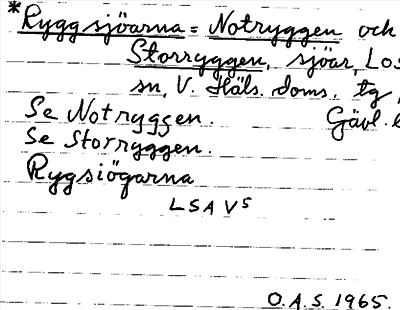 *Ryggsjöarna = Notryggen och
Storryggen, sjöar, Los
sn, V. Häls. doms. tg,
Se Notryggen. Gävl. l
Se Storryggen.
Rygsiögarna
LSA V5
O.A.S. 1965.